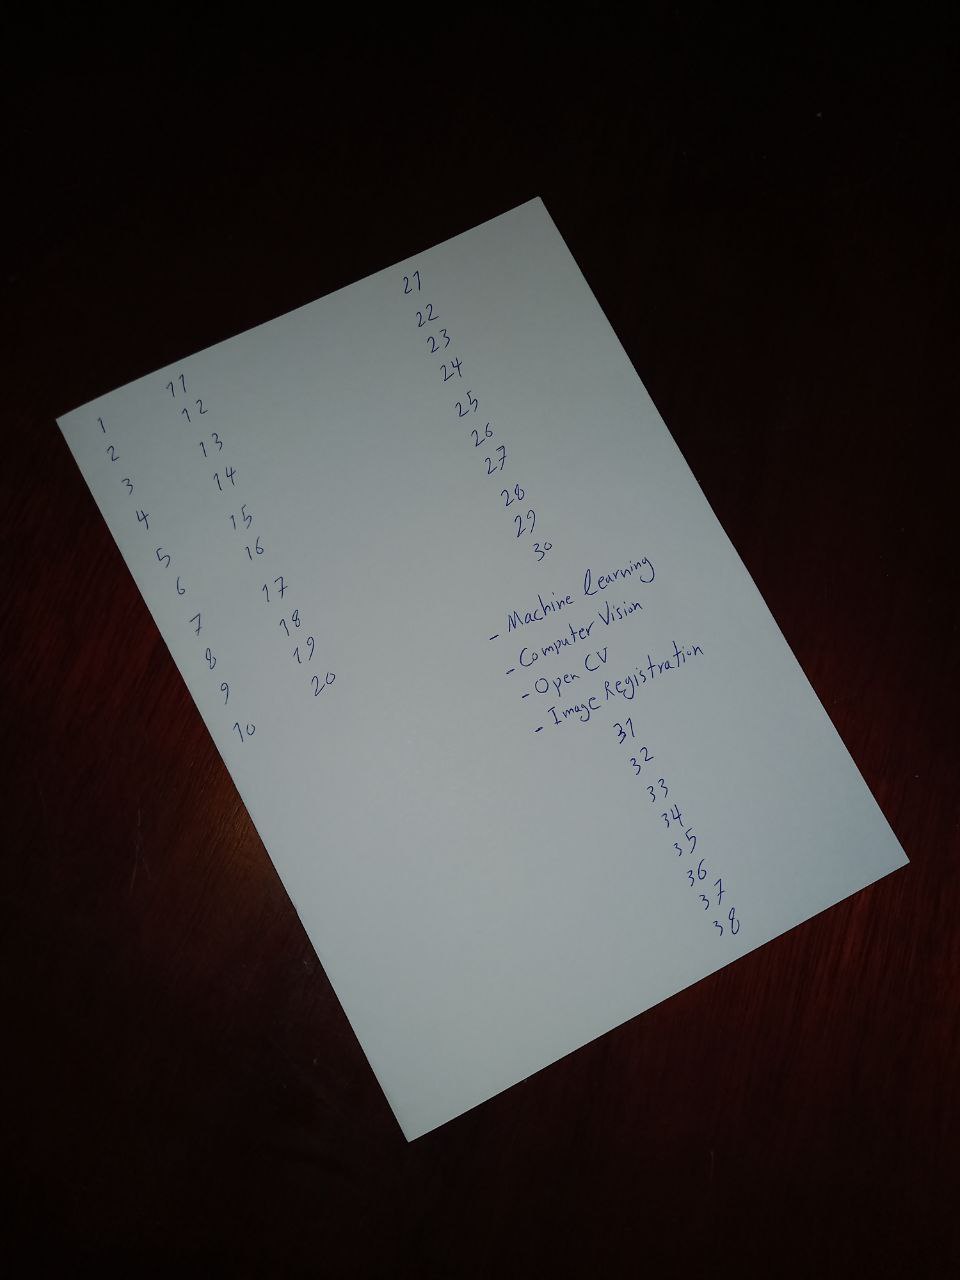 1
2
3
4
5
6
7
8
9
10
11
12
13
14
15
16
17
18
19
20
21
22
23
24
25
26
27
28
29
30
- Machine learning
- Computer Vision
- Open CV
- Image Registration
31
32
33
34
35
36
37
38